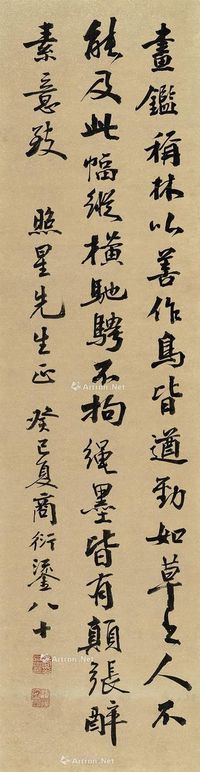 畫鑑稱林以善作鳥皆遒勁如草書人不
能及此幅縱橫馳騁不拘繩墨皆有顛張醉
素意致
照星先生正 癸巳夏商衍鎏八十
Artron.Net
Artron.Net
Artron.Net